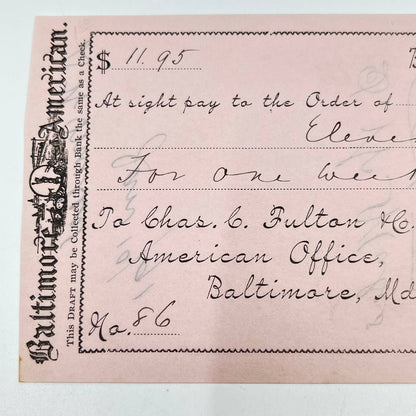 Baltimore American.
This DRAFT may be Collected through Bank the same as a Check.
$ 11.95
B
At sight pay to the Order of
Eleve
For one week
To Chas. C. Fulton & Co.
American Office,
Baltimore, Md
No. 86